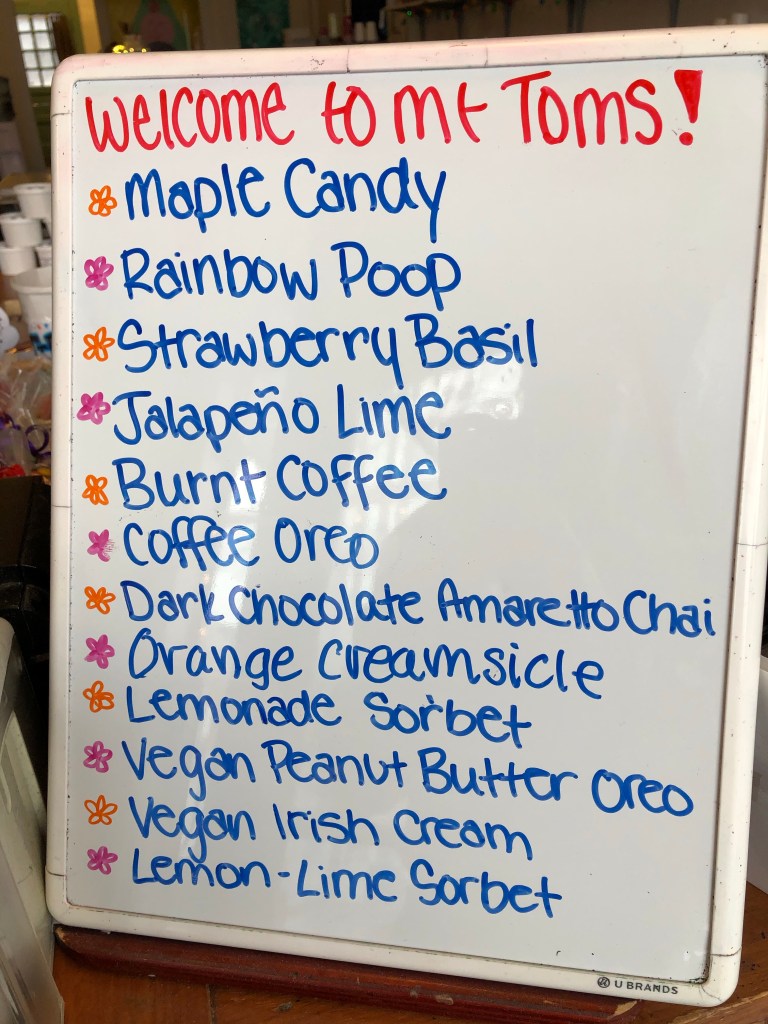 Welcome to mt Toms!
Maple Candy
Rainbow Poop
Strawberry Basil
Jalapeño Lime
Burnt Coffee
Coffee Oreo
Dark Chocolate Amaretto Chai
Orange Creamsicle
Lemonade Sorbet
Vegan Peanut Butter Oreo
Vegan Irish Cream
Lemon-Lime Sorbet
U BRANDS